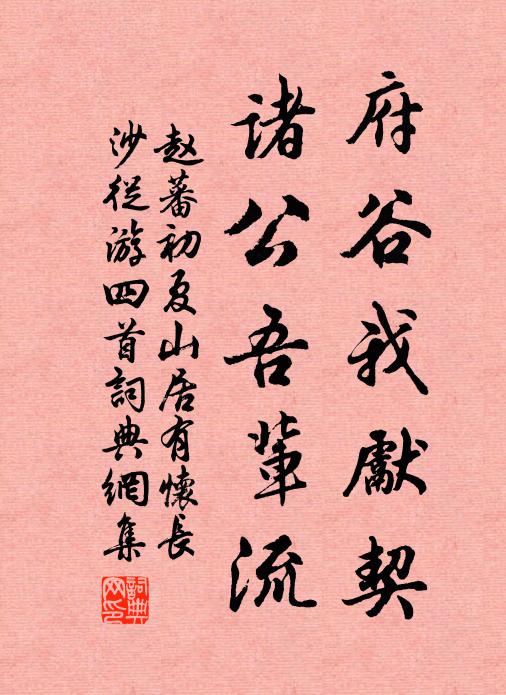 府谷我献契
诸公吾輩流
赵蕃初夏山居有懷長
沙從游四首詞典網集
詞典网印